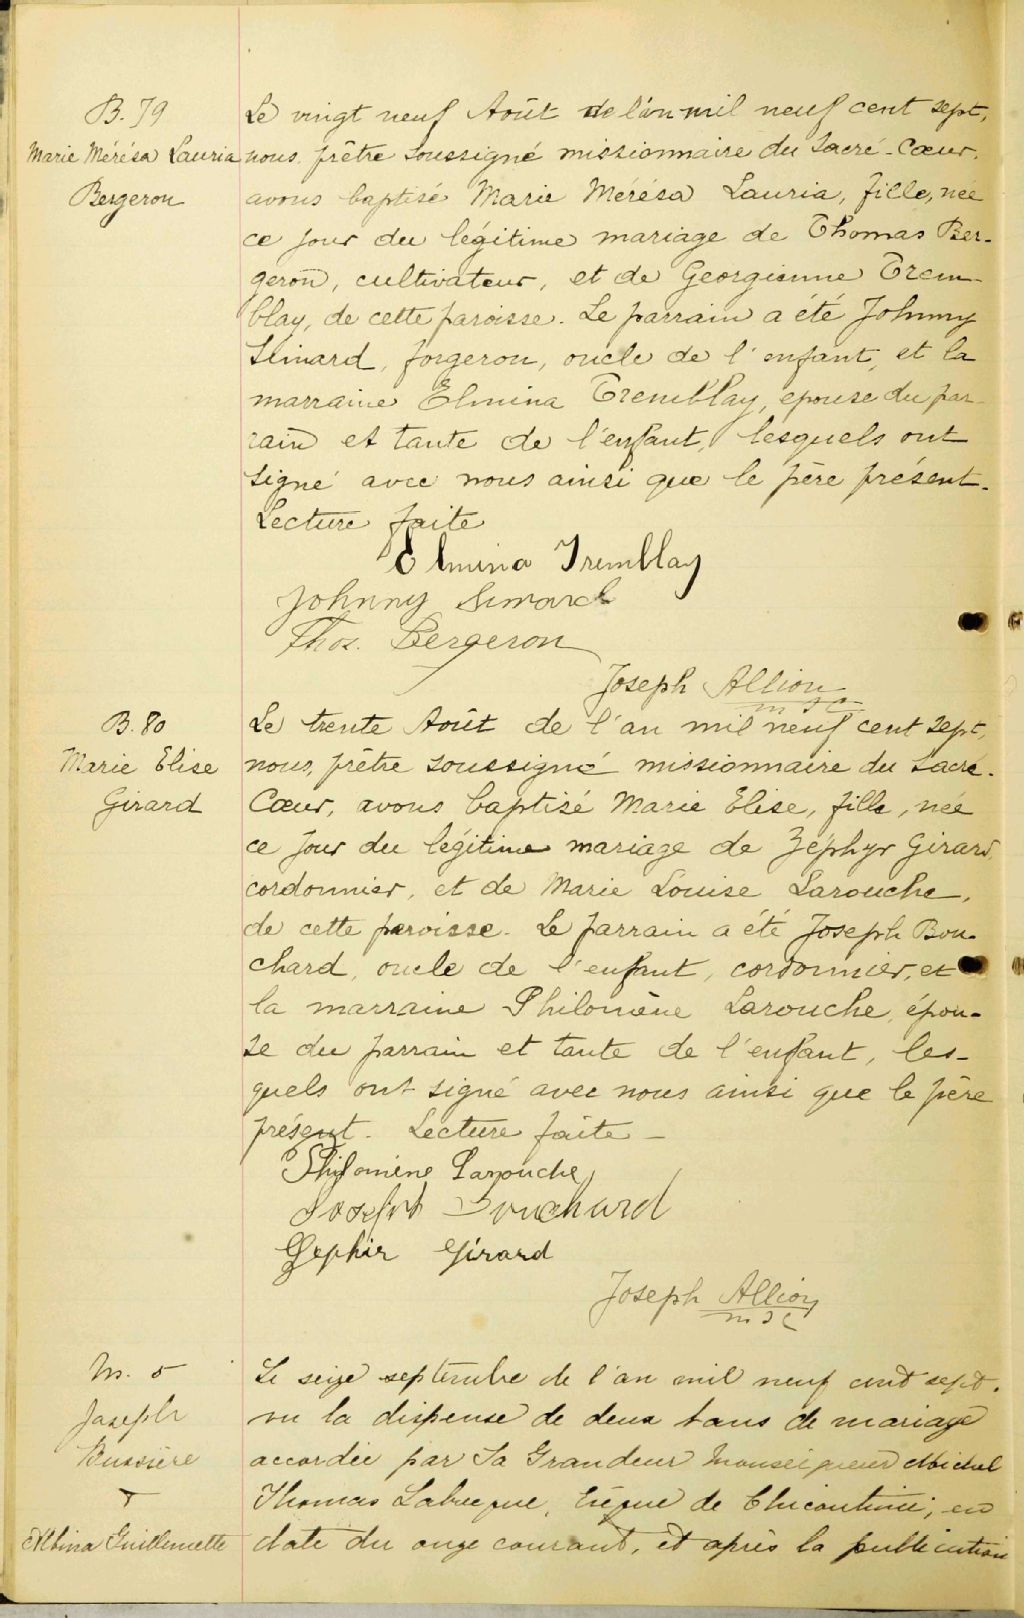 B. 79
Marie Mérésa Lauria
Bergeron
Le vingt neuf Août de l'an mil neuf cent sept,
nous, prêtre soussigné missionnaire du Sacré-Cœur,
avons baptisé Marie Mérésa Lauria, fille, née
ce jour du légitime mariage de Thomas Ber-
geron, cultivateur, et de Georgianne Trem-
blay, de cette paroisse. Le parrain a été Johnny
Simard, forgeron, oncle de l'enfant, et la
marraine Elmina Tremblay, epouse du par-
rain et tante de l'enfant, lesquels ont
signé avec nous ainsi que le père présent.
Lecture faite
Elmina Tremblay
Johnny Simard
Thos. Bergeron
Joseph Allion
m s c
B. 80
Marie Elise
Girard
Le trente Août de l'an mil neuf cent sept,
nous, prêtre soussigné missionnaire du Sacré-
Cœur, avons baptisé Marie Elise, fille, née
ce jour du légitime mariage de Zéphyr Girard,
cordonnier, et de Marie Louise Larouche,
de cette paroisse. Le parrain a été Joseph Bou-
chard, oncle de l'enfant, cordonnier, et
la marraine Philomène Larouche, épou-
se du parrain et tante de l'enfant, les-
quels ont signé avec nous ainsi que le père
présent. Lecture faite -
Philomène Larouche
Joseph Bouchard
Zephir Girard
Joseph Allion
m s c
M. 5
Joseph
Bussière
+
Albina Guillemette
Le seize septembre de l'an mil neuf cent sept,
vu la dispense de deux bans de mariage
accordée par Sa Grandeur Monseigneur Michel
Thomas Labrecque, évêque de Chicoutimi, en
date du onze courant, et après la publication